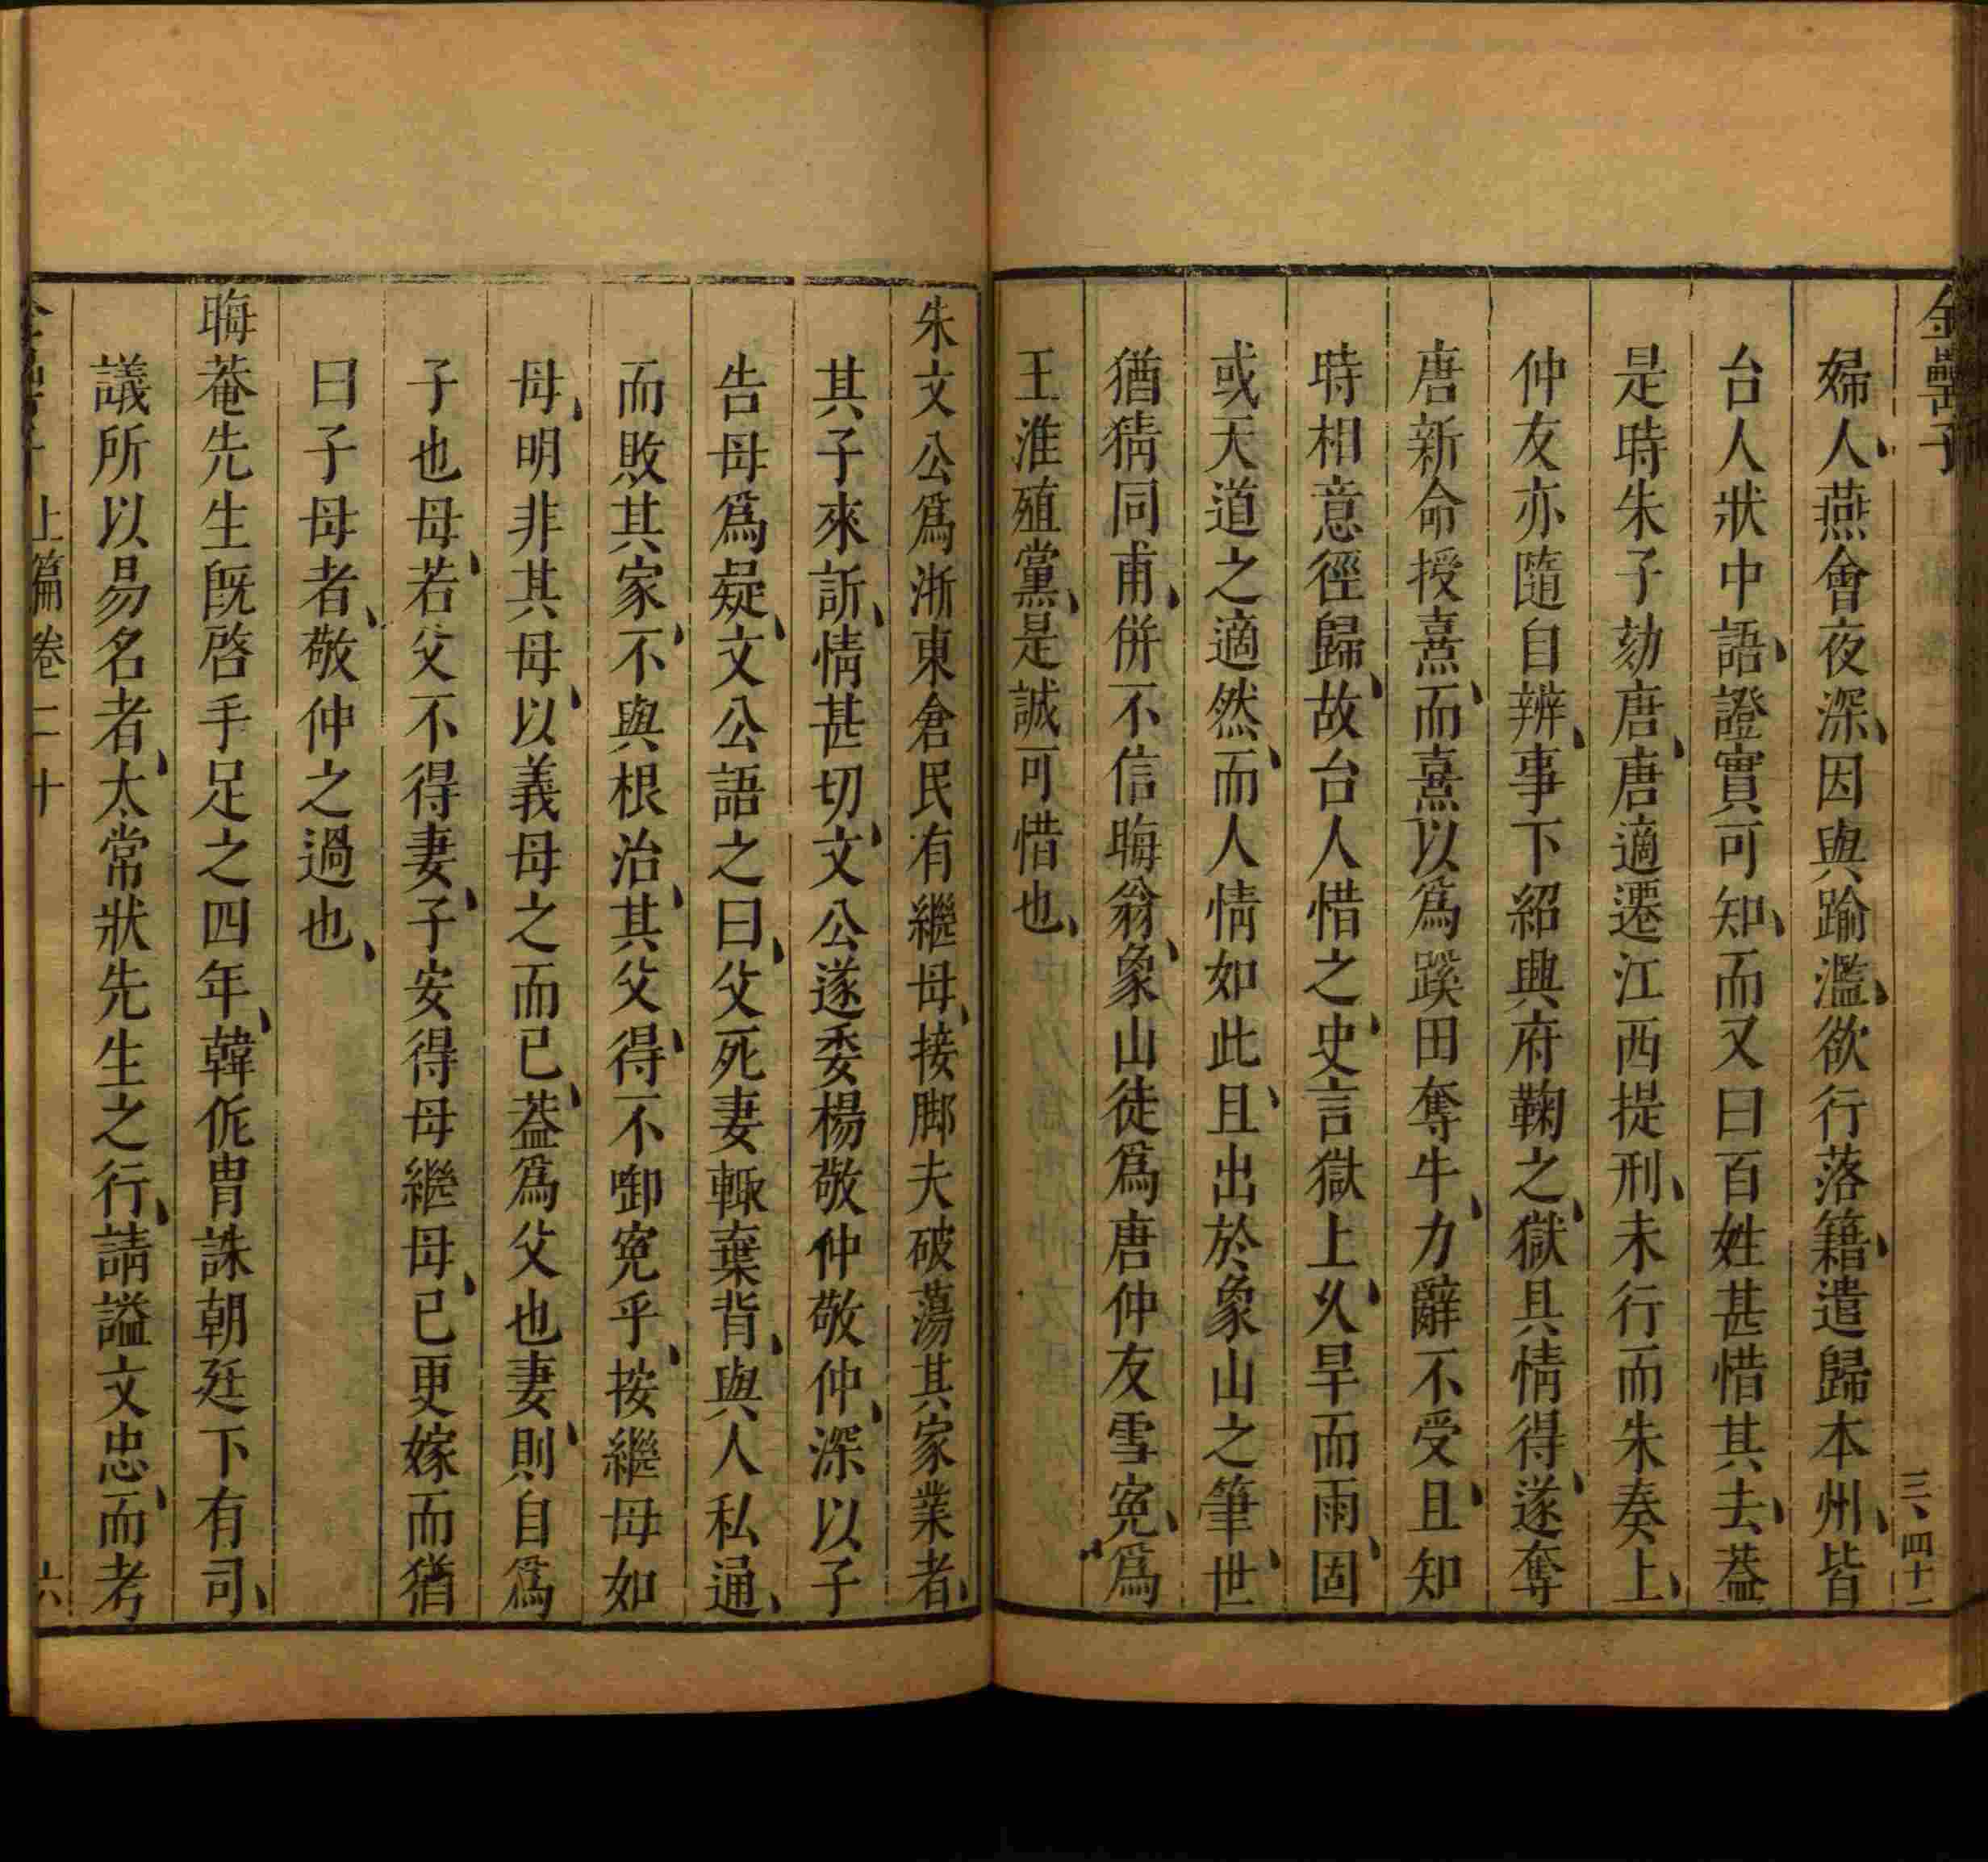 金罍子
三、四十一
婦人、燕會夜深、因與踰濫、欲行落籍、遣歸本州、皆
台人狀中語、證實可知、而又曰百姓甚惜其去、葢
是時朱子劾唐、唐適遷江西提刑、未行而朱奏上、
仲友亦隨自辨、事下紹興府鞠之、獄具情得、遂奪
唐新命授熹、而熹以爲蹊田奪牛、力辭不受、且知
時相意徑歸、故台人惜之、史言獄上、乆旱而雨、固
或天道之適然、而人情如此、且出於象山之筆、世
猶猜同甫、併不信晦翁、象山徒爲唐仲友雪寃、爲
王淮殖黨、是誠可惜也、
朱文公爲浙東倉民有繼母、接脚夫破蕩其家業者、
其子來訴、情甚切、文公遂委楊敬仲敬仲、深以子
告母爲疑、文公語之曰、父死妻輙棄背、與人私通、
而敗其家、不與根治、其父得、不啣寃乎、按繼母如
母、明非其母、以義母之而已、葢爲父也妻、則自爲
子也母、若父不得妻、子安得母繼母、已更嫁而猶
曰子母者、敬仲之過也、
晦菴先生旣啓手足之四年、韓侂胄誅朝廷下有司、
議所以易名者、太常狀先生之行、請謚文忠、而考
上篇卷二十
六